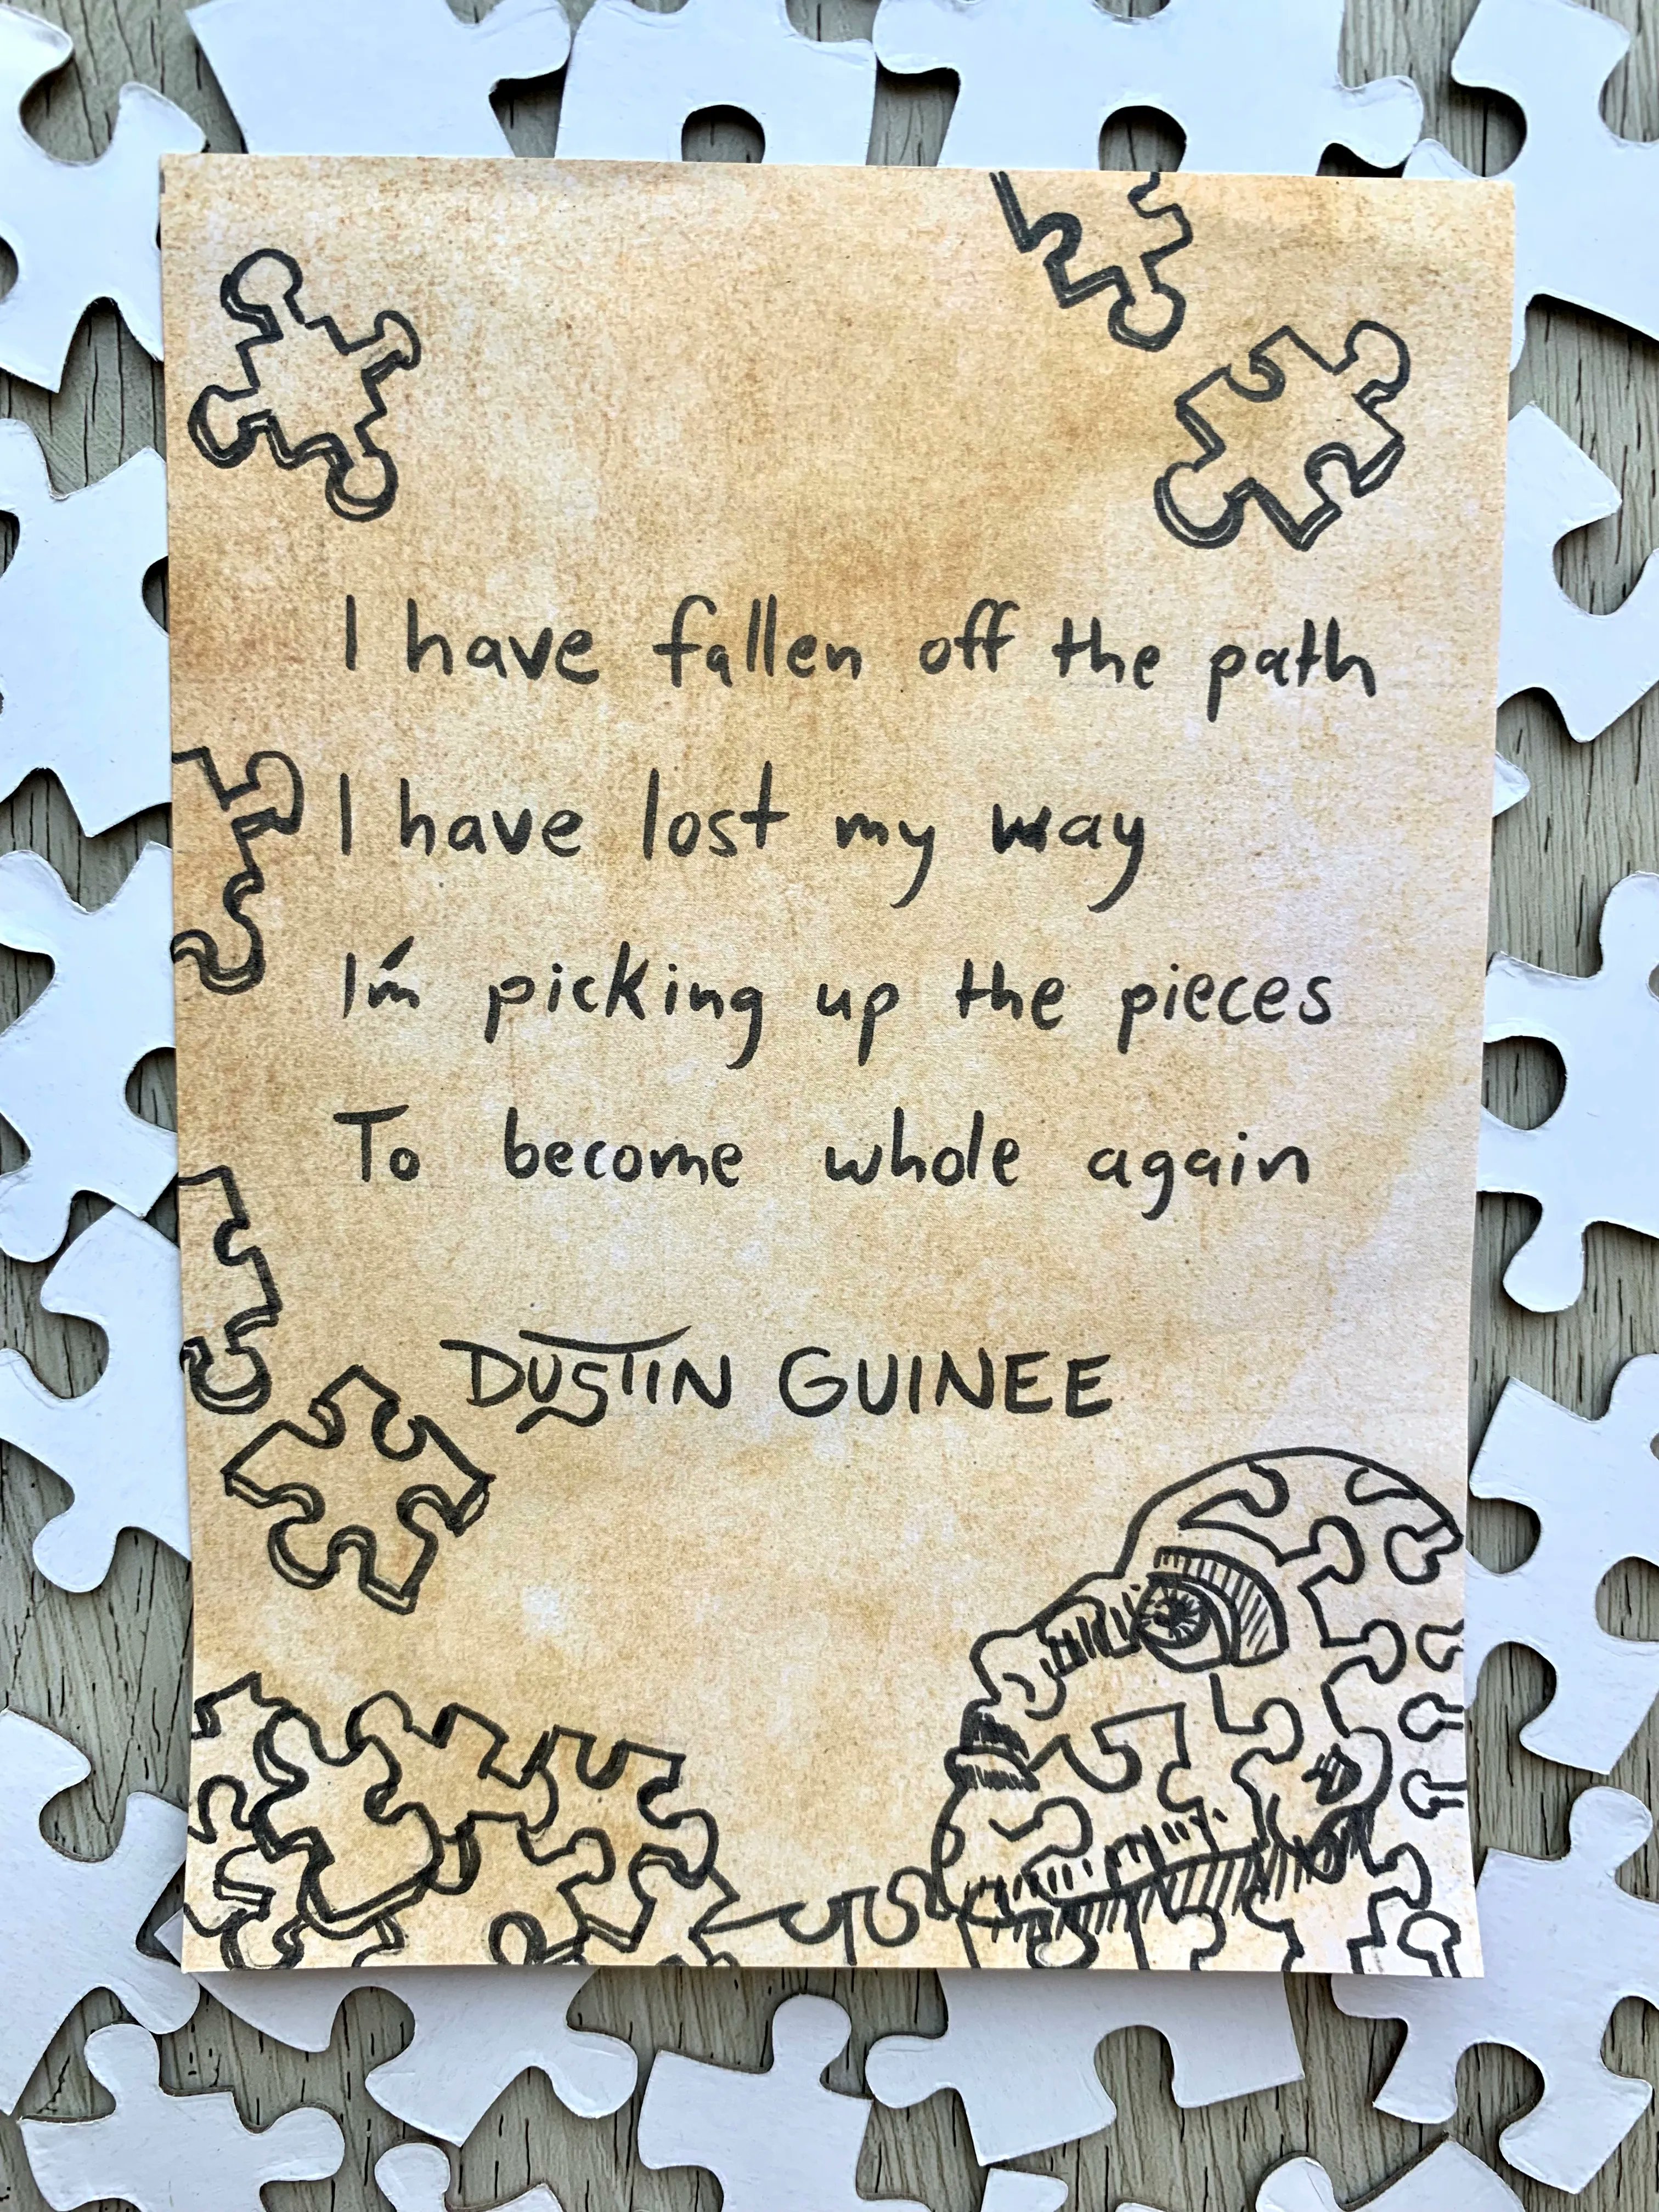 I have fallen off the path
I have lost my way
I'm picking up the pieces
To become whole again
DUSTIN GUINEE